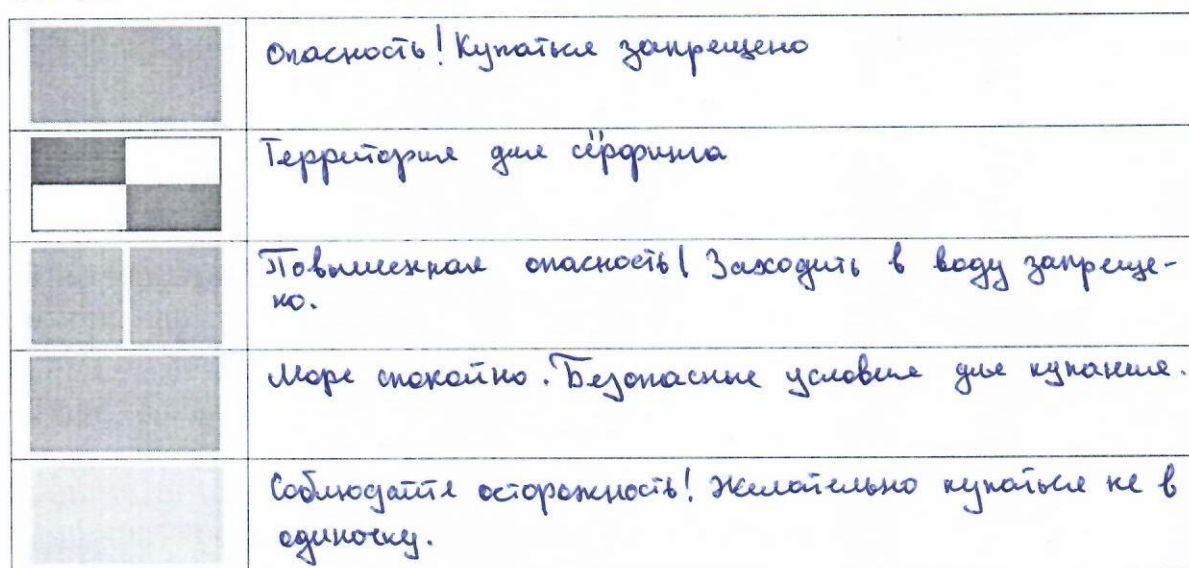 Опасность! Купаться запрещено
Территория для сёрфинга
Повышенная опасность! Заходить в воду запреще-
но.
Море спокойно. Безопасные условия для купания.
Соблюдайте осторожность! Желательно купаться не в
одиночку.